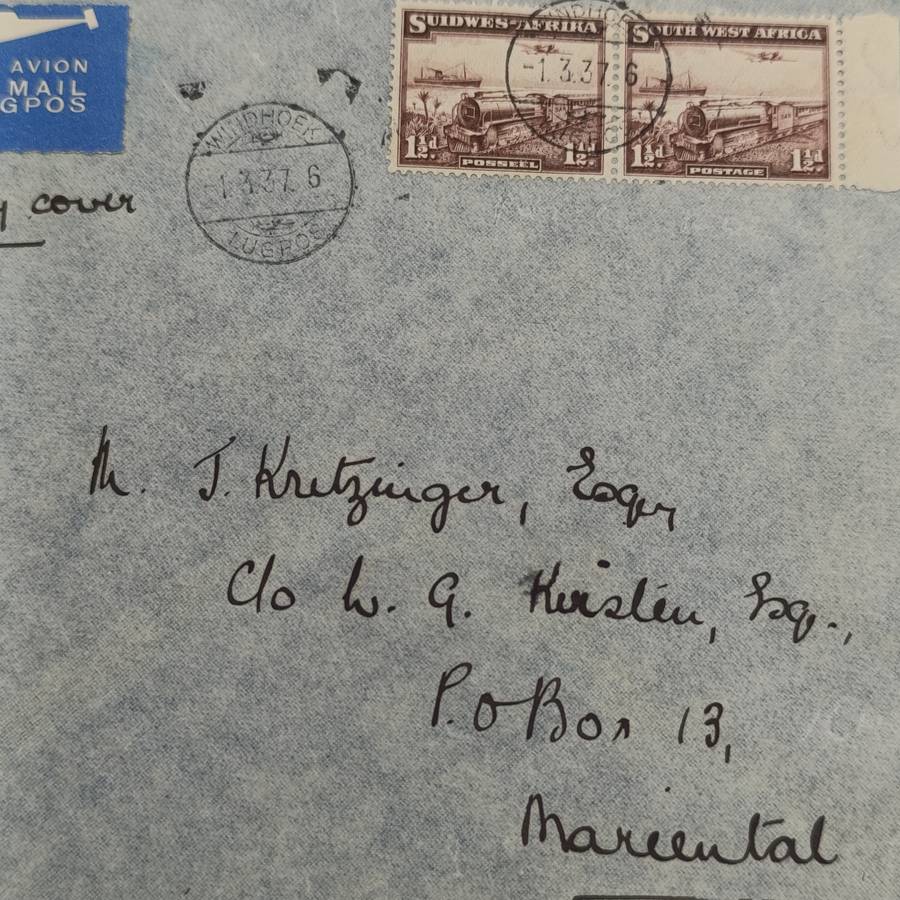 AVION
MAIL
GPOS
y cover
WINDHOEK
-1.3.37. 6
LUGPOS
SUIDWES-AFRIKA
1½d. POSSEËL 1½d.
SOUTH WEST AFRICA
1½d. POSTAGE 1½d.
WINDHOEK
-1.3.37 6
M. J. Kretzinger, Esq,
C/o W. G. Kirsten, Esq.,
P.O Box 13,
Mariental